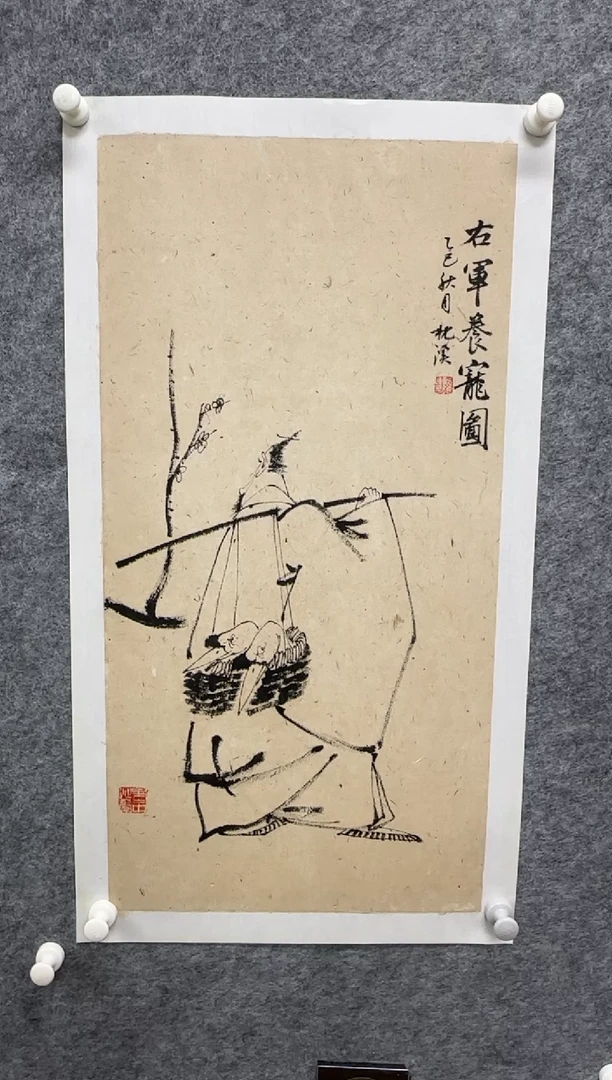 右軍養寵圖
乙巳秋月 枕溪